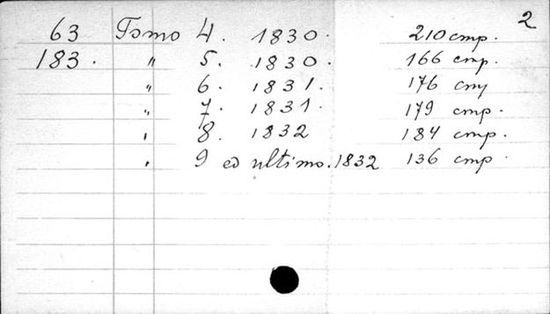 2
63 Tomo 4. 1830. 210 стр.
183. " 5. 1830. 166 стр.
" 6. 1831. 176 стр
" 7. 1831. 179 стр.
" 8. 1832 184 стр.
" 9 ed ultimo. 1832 136 стр.